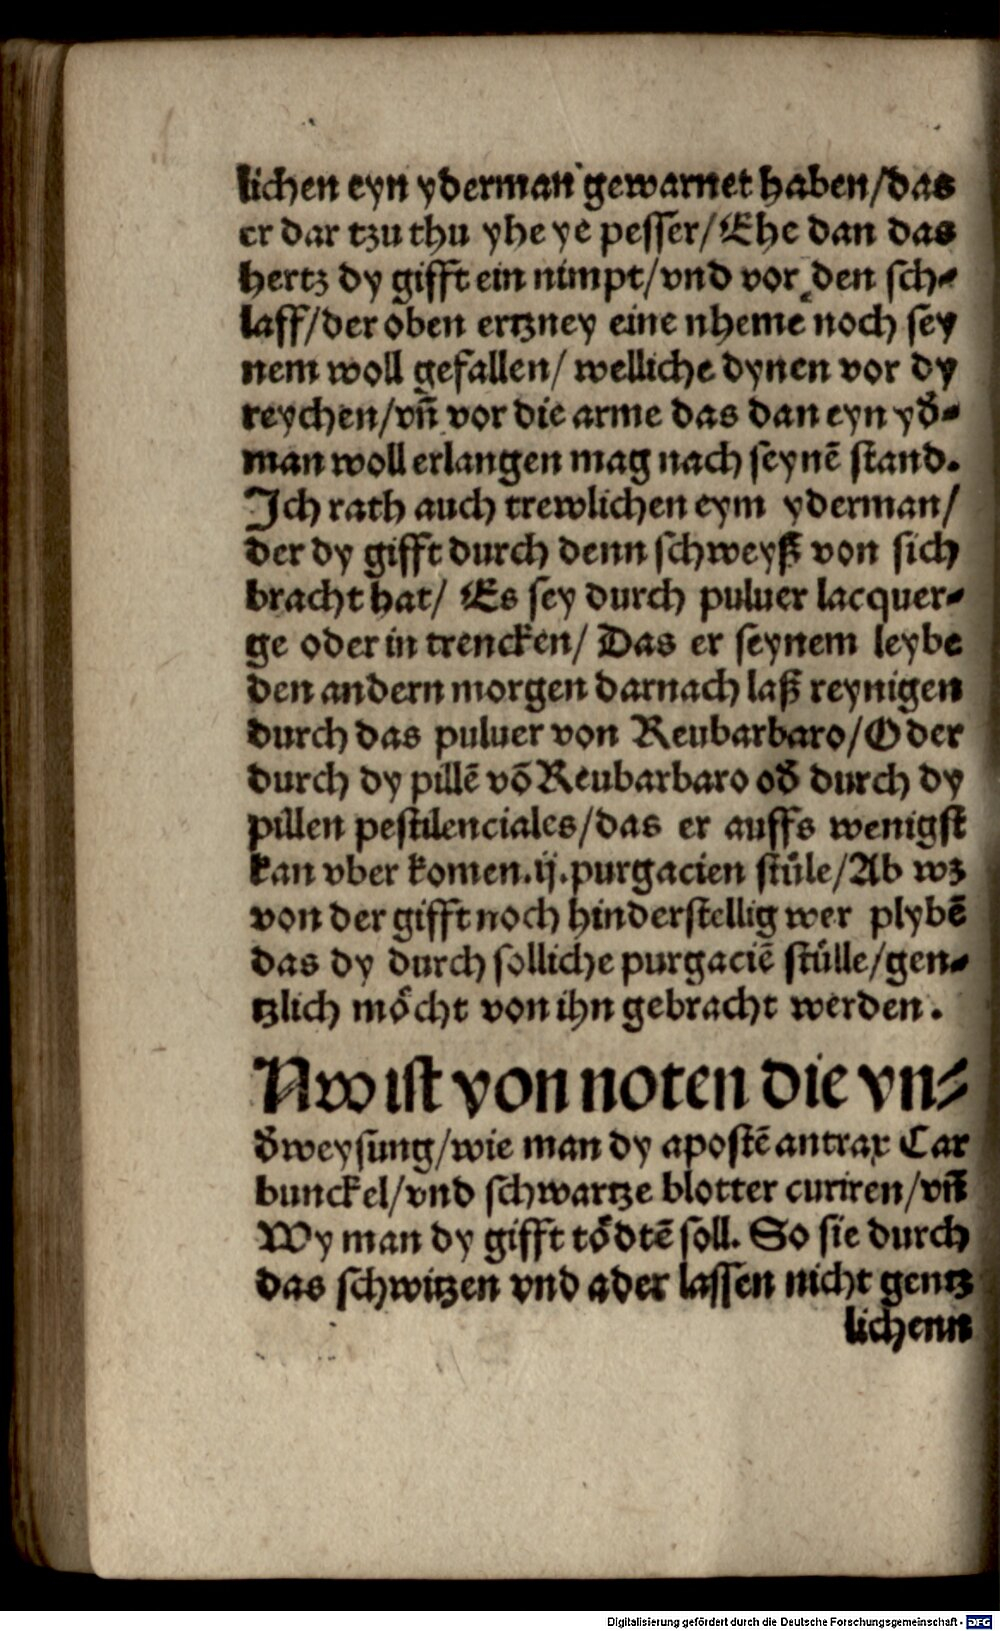 lichen eyn yderman gewarnet haben/das
er dar tzu thu yhe ye pesser/Ehe dan das
hertz dy gifft ein nimpt/vnd vor den sch-
laff/der oben ertzney eine nheme noch sey
nem woll gefallen/ welliche dynen vor dy
reychen/vñ vor die arme das dan eyn yd̄-
man woll erlangen mag nach seynē stand.
Ich rath auch trewlichen eym yderman/
der dy gifft durch denn schweyß von sich
bracht hat/ Es sey durch puluer lacquer-
ge oder in trencken/ Das er seynem leybe
den andern morgen darnach laß reynigen
durch das puluer von Reubarbaro/Oder
durch dy pillē vō Reubarbaro od̄ durch dy
pillen pestilenciales/das er auffs wenigst
kan vber komen.ij.purgacien stůle/Ab wz
von der gifft noch hinderstellig wer plybē
das dy durch solliche purgaciē stůlle/gen-
tzlich mo̊cht von ihn gebracht werden.
Nw ist von noten die vn-
d̄weysung/wie man dy apostē antrax Car
bunckel/vnd schwartze blotter curiren/vñ
Wy man dy gifft to̊dtē soll. So sie durch
das schwitzen vnd ader lassen nicht gentz
lichenn
Digitalisierung gefördert durch die Deutsche Forschungsgemeinschaft - DFG